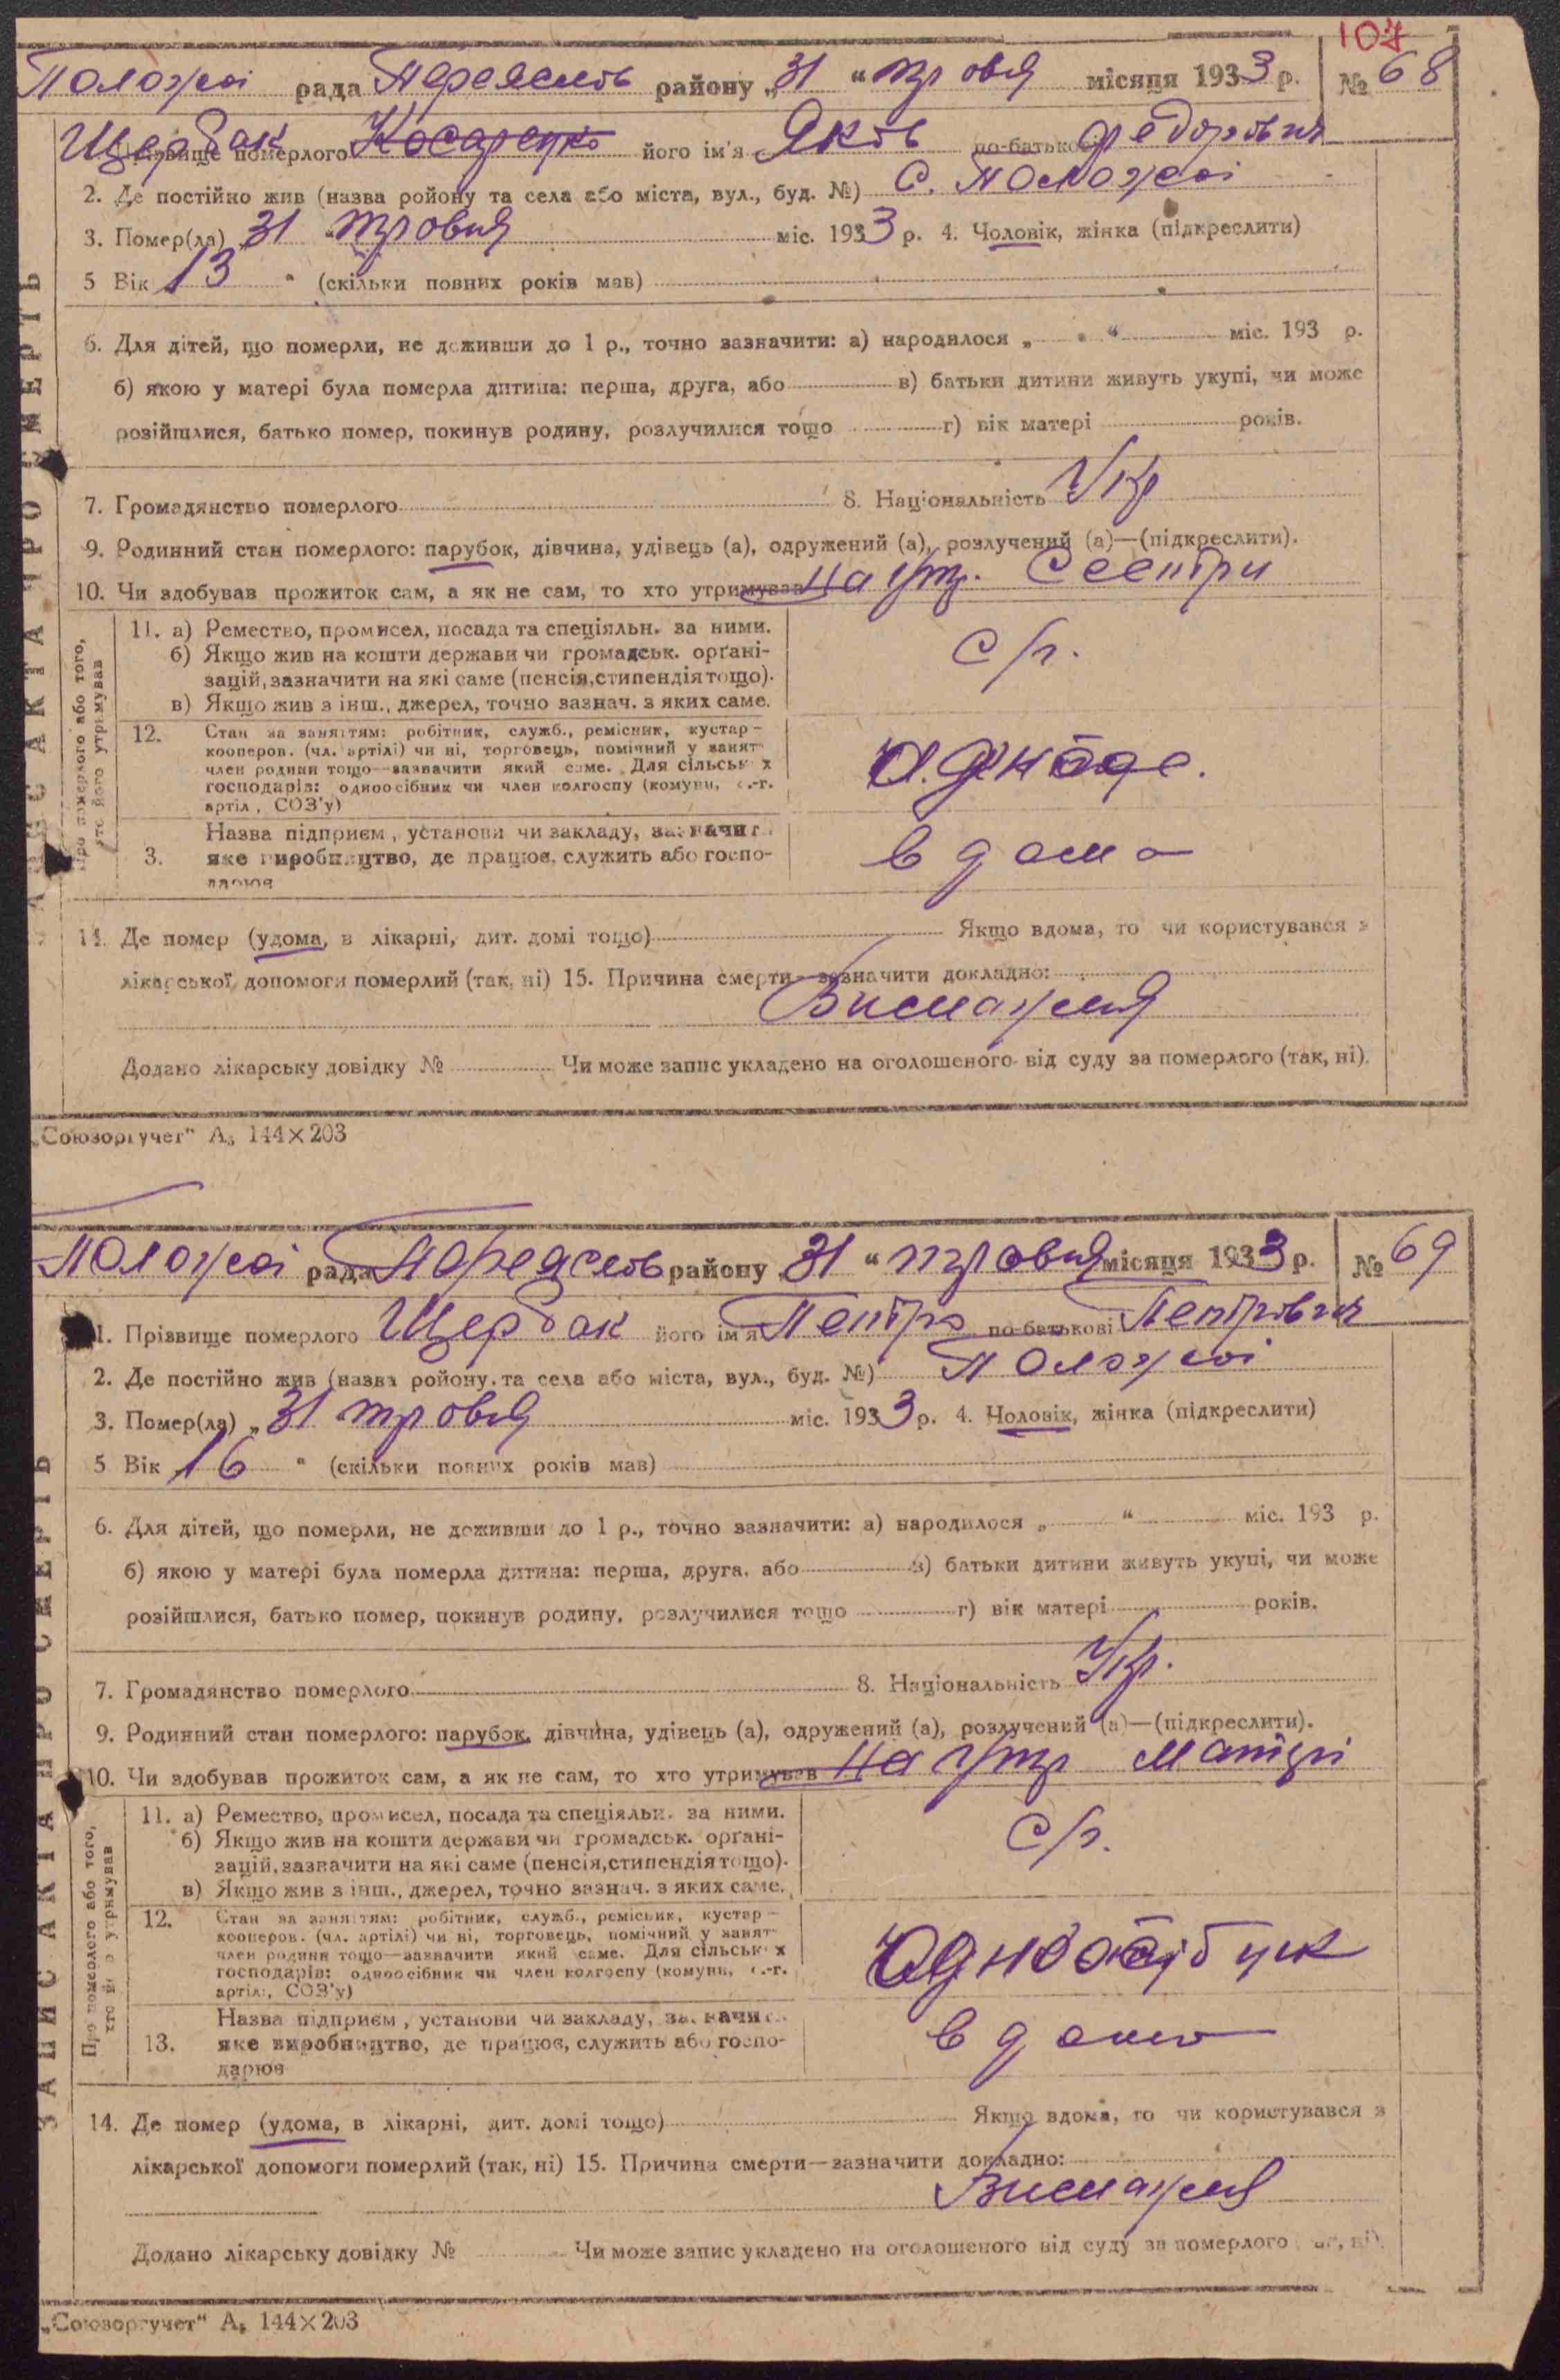 107
Положаі рада Переяслів району „31 “ травня місяця 1933 р. № 68
Щербак Прізвище померлого Косаренко його ім'я Яків по-батькові Федорович
2. Де постійно жив (назва ройону та села або міста, вул., буд. №) С. Положаі
3. Помер(ла) 31 травня міс. 1933 р. 4. Чоловік, жінка (підкреслити)
5 Вік 13 " (скільки повних років мав)
6. Для дітей, що померли, не доживши до 1 р., точно зазначити: а) народилося „ “ міс. 193 р.
б) якою у матері була померла дитина: перша, друга, або в) батьки дитини живуть укупі, чи може
розійшлися, батько помер, покинув родину, розлучилися тощо г) вік матері років.
7. Громадянство померлого 8. Національність Укр
9. Родинний стан померлого: парубок, дівчина, удівець (а), одружений (а), розлучений (а)—(підкреслити).
10. Чи здобував прожиток сам, а як не сам, то хто утримував на утр. Сестри
11. а) Ремество, промисел, посада та спеціяльн. за ними.
б) Якщо жив на кошти держави чи громадськ. органі-
зацій, зазначити на які саме (пенсія, стипендія тощо).
в) Якщо жив з інш., джерел, точно зазнач. з яких саме.
С/г.
12. Стан за заняттям: робітник, служб., ремісник, кустар—
кооперов. (чл. артілі) чи ні, торговець, помічний у занят
член родини тощо—зазначити який саме. Для сільськ х
господарів: одноосібник чи член колгоспу (комуни, с.-г.
артіл , СОЗ'у)
3. Назва підприєм , установи чи закладу, зазначит
яке виробництво, де працює, служить або госпо-
дарює
в дома
14. Де помер (удома, в лікарні, дит. домі тощо) Якщо вдома, то чи користувався з
лікарської допомоги померлий (так, ні) 15. Причина смерти—зазначити докладно:
Виснажня
Додано лікарську довідку № Чи може запис укладено на оголошеного від суду за померлого (так, ні).
„Союзоргучет“ А₅ 144×203
Положаі рада Переяслів району 31 “ травня місяця 1933 р. № 69
1. Прізвище померлого Щербак його ім'я Петро по-батькові Петрович
2. Де постійно жив (назва ройону та села або міста, вул., буд. №) Положаі
3. Помер(ла) „ 31 травня міс. 1933 р. 4. Чоловік, жінка (підкреслити)
5 Вік 16 " (скільки повних років мав)
6. Для дітей, що померли, не доживши до 1 р., точно зазначити: а) народилося „ “ міс. 193 р.
б) якою у матері була померла дитина: перша, друга, або в) батьки дитини живуть укупі, чи може
розійшлися, батько помер, покинув родину, розлучилися тощо г) вік матері років.
7. Громадянство померлого 8. Національність Укр.
9. Родинний стан померлого: парубок, дівчина, удівець (а), одружений (а), розлучений (а)—(підкреслити).
10. Чи здобував прожиток сам, а як не сам, то хто утримував на утр матері
11. а) Ремество, промисел, посада та спеціяльн. за ними.
б) Якщо жив на кошти держави чи громадськ. органі-
зацій, зазначити на які саме (пенсія, стипендія тощо).
в) Якщо жив з інш., джерел, точно зазнач. з яких саме.
С/г.
12. Стан за заняттям: робітник, служб., ремісник, кустар—
кооперов. (чл. артілі) чи ні, торговець, помічний у занят
член родини тощо—зазначити який саме. Для сільськ х
господарів: одноосібник чи член колгоспу (комуни, с.-г.
артіл, СОЗ'у)
Одноосібник
13. Назва підприєм , установи чи закладу, зазначит
яке виробництво, де працює, служить або госпо-
дарює
в дома
14. Де помер (удома, в лікарні, дит. домі тощо) Якщо вдома, то чи користувався з
лікарської допомоги померлий (так, ні) 15. Причина смерти—зазначити докладно:
Виснажня
Додано лікарську довідку № Чи може запис укладено на оголошеного від суду за померлого
„Союзоргучет“ А₅ 144×203
ЗАПИС АКТА ПРО СМЕРТЬ
Про померлого або того,
хто його утримував